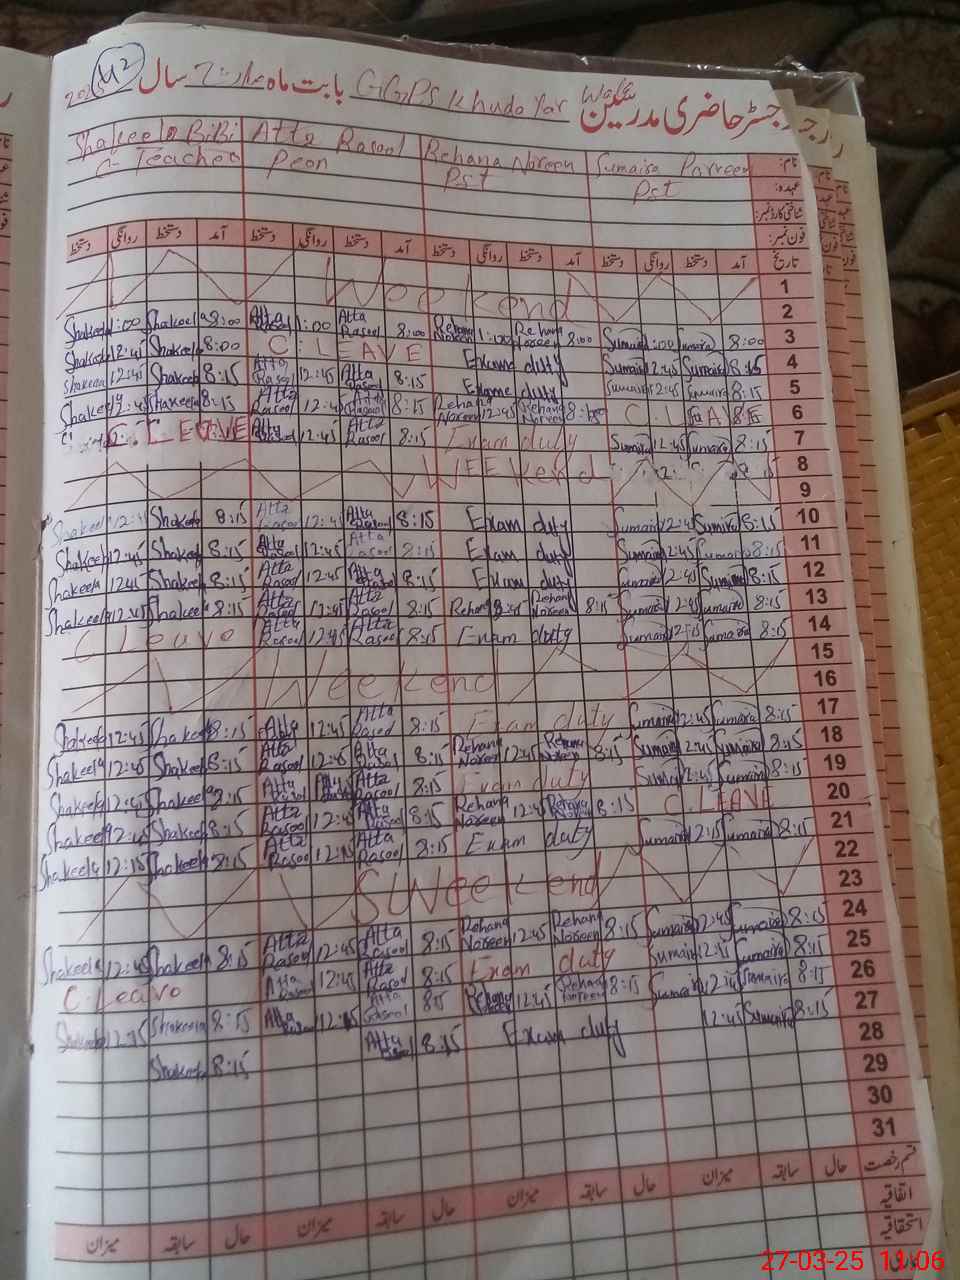 رجسٹر حاضری مدرسین GGPS Khuda Yar بابت ماہ مارچ سال 2025
M2
نام: Sumaira Parveen Rehana Noreen Atta Rasool Shakeela BiBi
عہدہ: Pst Pst Peon C-Teacher
شناختی کارڈ نمبر:
فون نمبر:
تاریخ آمد دستخط روانگی دستخط آمد دستخط روانگی دستخط آمد دستخط روانگی دستخط آمد دستخط روانگی دستخط
1
2 Weekend
3 8:00 Sumaira 1:00 Sumaira 8:00 Rehana Noreen 1:00 Rehana Noreen 8:00 Atta Rasool 1:00 Atta Rasool 8:00 Shakeela 1:00 Shakeela
4 8:15 Sumaira 12:45 Sumaira Exam duty C.LEAVE 8:00 Shakeela 12:45 Shakeela
5 8:15 Sumaira 12:45 Sumaira Exame duty 8:15 Atta Rasool 12:45 Atta Rasool 8:15 Shakeela 12:45 Shakeela
6 C.LEAVE Rehana Noreen 12:45 Rehana Noreen 8:15 Atta Rasool 12:45 Atta Rasool 8:15 Shakeela 12:45 Shakeela
7 8:15 Sumaira 12:45 Sumaira Exam duty 8:15 Atta Rasool 12:45 C.LEAVE
8 WEEKend
9
10 8:15 Sumaira 12:45 Sumaira Exam duty 8:15 Atta Rasool 12:45 Atta Rasool 8:15 Shakeela Shakeela
11 8:15 Sumaira 12:45 Sumaira Exam duty 8:15 Atta Rasool 12:45 Atta Rasool 8:15 Shakeela 12:45 Shakeela
12 8:15 Sumaira 12:45 Sumaira Exam duty 8:15 Atta Rasool 12:45 Atta Rasool 8:15 Shakeela 12:45 Shakeela
13 8:15 Sumaira 12:45 Sumaira 8:15 Rehana Noreen Rehana 8:15 Atta Rasool 12:45 Atta Rasool 8:15 Shakeela 12:45 Shakeela
14 8:15 Sumaira Sumaira Exam duty 8:15 Atta Rasool 12:45 Atta Rasool C Leave
15
16 Weekend
17 8:15 Sumaira 12:45 Sumaira Exam duty 8:15 Atta Rasool 12:45 Atta 8:15 Shakeela 12:45 Shakeela
18 8:15 Sumaira 12:45 Sumaira 8:15 Rehana Noreen 12:45 Rehana Noreen 8:15 Atta Rasool 12:45 Atta Rasool 8:15 Shakeela 12:45 Shakeela
19 8:15 Sumaira 12:45 Sumaira Exam duty 8:15 Atta Rasool Atta Rasool 8:15 Shakeela 12:45 Shakeela
20 C.LEAVE 8:15 Rehana Noreen 12:45 Rehana Noreen 8:15 Atta Rasool 12:45 Atta Rasool 8:15 Shakeela 12:45 Shakeela
21 8:15 Sumaira 12:15 Sumaira Exam duty 8:15 Atta Rasool 12:15 Atta Rasool 8:15 Shakeela 12:15 Shakeela
22
23 Weekend
24 8:15 Sumaira 12:45 Sumaira 8:15 Rehana Noreen 12:45 Rehana Noreen 8:15 Atta Rasool 12:45 Atta Rasool 8:15 Shakeela 12:45 Shakeela
25 8:15 Sumaira 12:15 Sumaira Exam duty 8:15 Atta Rasool 12:45 Atta Rasool C.Leave
26 8:15 Sumaira 12:45 Sumaira 8:15 Rehana Noreen 12:45 Rehana 8:15 Atta Rasool Atta Rasool 8:15 Shakeela 12:15 Shakeela
27 8:15 Sumaira 12:45 Exam duty 8:15 Atta Rasool 8:15 Shakeela
28
29
30
31
قسم رخصت حال سابقہ میزان حال سابقہ میزان حال سابقہ میزان حال سابقہ میزان
اتفاقیہ
استحقاقیہ
27-03-25 11:06